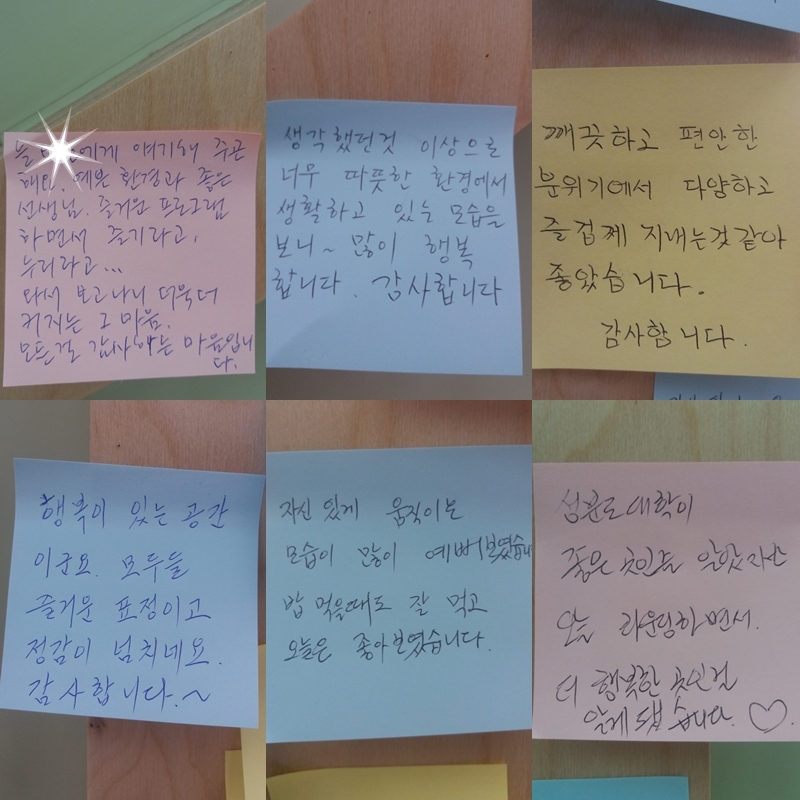 에게 얘기해 주곤
해요. 예쁜 환경과 좋은
선생님. 즐거운 프로그램
하면서 즐기라고,
누리라고...
와서 보고나니 더욱더
커지는 그 마음.
모든걸 감사하는 마음입니
다.
생각했던것 이상으로
너무 따뜻한 환경에서
생활하고 있는 모습을
보니~ 많이 행복
합니다. 감사합니다
깨끗하고 편안한
분위기에서 다양하고
즐겁께 지내는것같아
좋았습니다.
감사합니다.
행복이 있는 공간
이군요. 모두들
즐거운 표정이고
정감이 넘치네요.
감사합니다.~
자신있게 움직이는
모습이 많이 예뻐보였습니
밥 먹을때도 잘 먹고
오늘은 좋아보였습니다.
성분도대학이
좋은 곳인줄 알았지만
오늘 라운딩하면서.
더 행복한 곳인걸
알게 되었습니다. ♡.